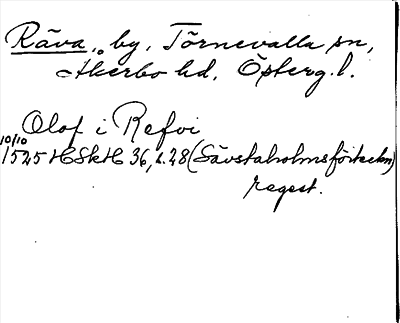 Räva, by, Törnevalla sn,
Åkerbo hd, Österg. l.
Olof i Refvi
10/10
1525 HSkH 36, s. 28 (Sävstaholmsförteckn)
regest.